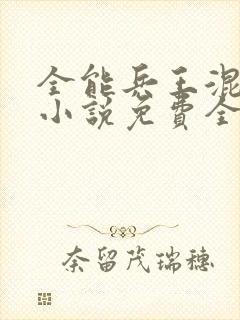 全能兵王混
小说免費全
奈留茂瑞穗